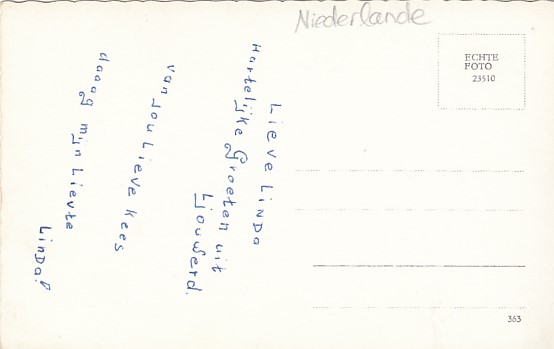 Niederlande
ECHTE
FOTO
23510
Lieve Linda
Hartelijke Groeten uit
Ljouwerd.
van jou Lieve Kees
daaag mijn Lievste
Linda!
363